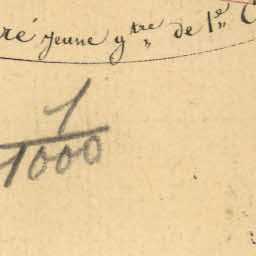 ré jeune gtre de 1e C
1
1000